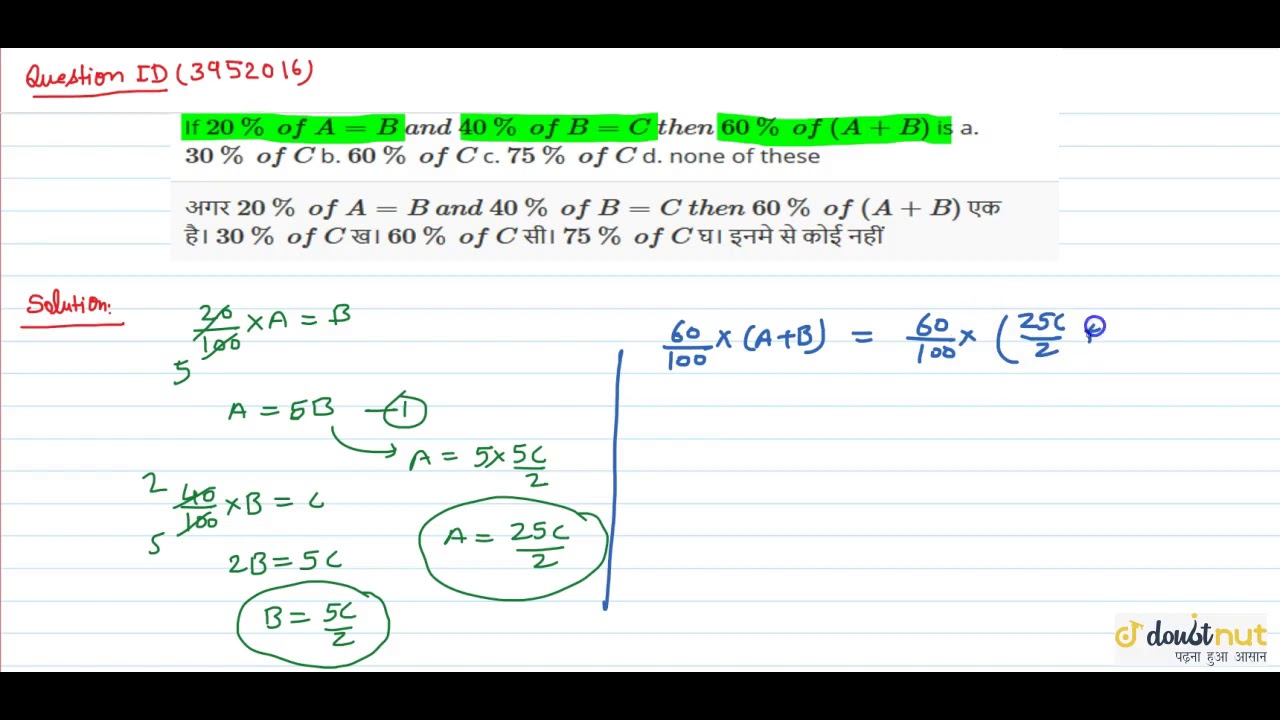 Question ID (3952016)
If 20 % of A = B and 40 % of B = C then 60 % of (A + B) is a.
30 % of C b. 60 % of C c. 75 % of C d. none of these
अगर 20 % of A = B and 40 % of B = C then 60 % of (A + B) एक
है। 30 % of C ख। 60 % of C सी। 75 % of C घ। इनमे से कोई नहीं
Solution:
20/100 × A = B
5
A = 5B —1
A = 5 × 5C/2
A = 25C/2
2
40/100 × B = C
5
2B = 5C
B = 5C/2
60/100 × (A+B) = 60/100 × (25C/2
doubtnut
पढ़ना हुआ आसान